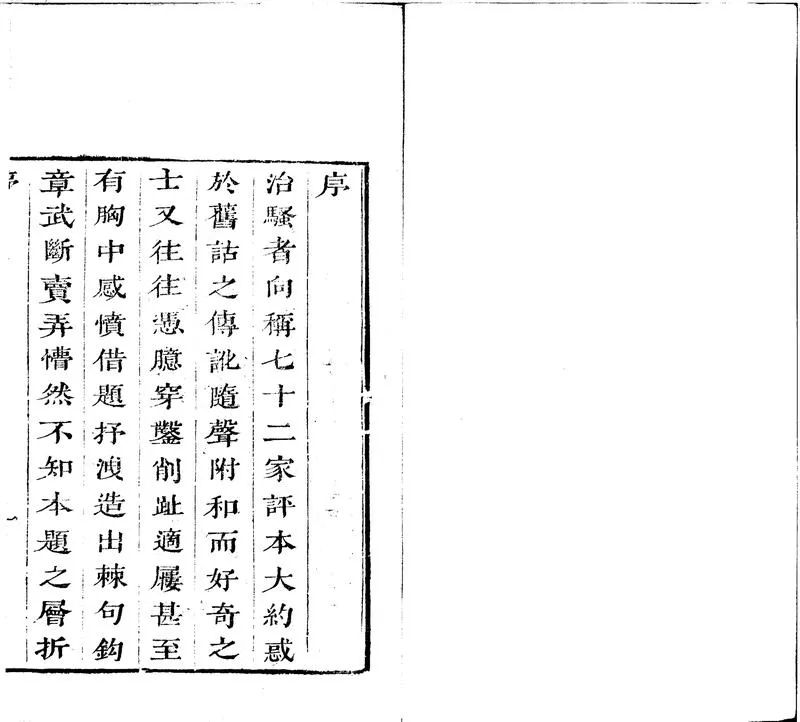 序
治騷者向稱七十二家評本大約惑
於舊詁之傳訛隨聲附和而好奇之
士又往往憑臆穿鑿削趾適屨甚至
有胸中感憤借題抒洩造出棘句鈎
章武斷賣弄懵然不知本題之層折
序
一